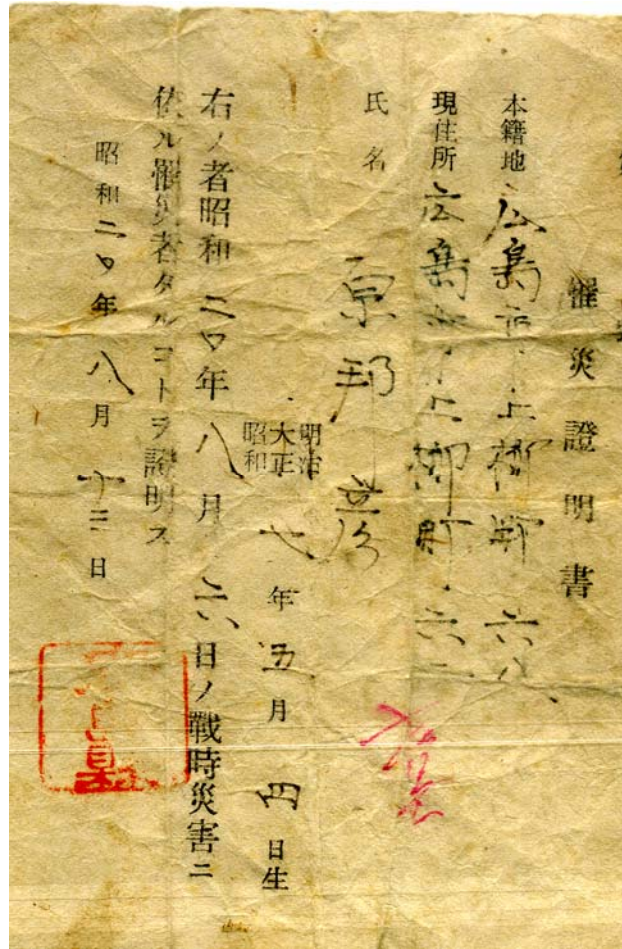 罹災證明書
本籍地 広島市上柳町 六八
現住所 広島市上柳町 六二
氏名 原邦彦
明治
大正 七年五月四日生
昭和
右ノ者昭和二〇年八月六日ノ戰時災害ニ
依ル罹災者タルコトヲ證明ス
昭和二〇年八月十二日